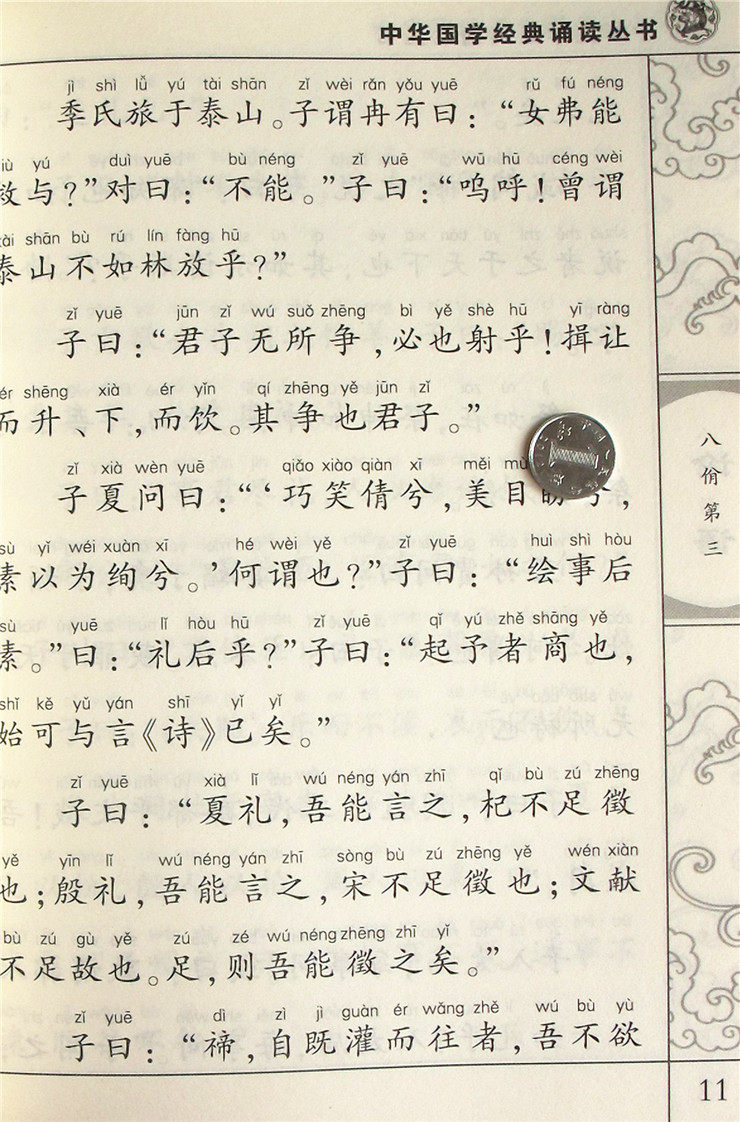 中华国学经典诵读丛书
jì shì lǚ yú tài shān zǐ wèi rǎn yǒu yuē rǔ fú néng
季氏旅于泰山。子谓冉有曰：“女弗能
jiù yú duì yuē bù néng zǐ yuē wū hū céng wèi
救与？”对曰：“不能。”子曰：“呜呼！曾谓
tài shān bù rú lín fàng hū
泰山不如林放乎？”
zǐ yuē jūn zǐ wú suǒ zhēng bì yě shè hū yī ràng
子曰：“君子无所争，必也射乎！揖让
ér shēng xià ér yǐn qí zhēng yě jūn zǐ
而升、下，而饮。其争也君子。”
zǐ xià wèn yuē qiǎo xiào qiàn xī měi mù
子夏问曰：“‘巧笑倩兮，美目盼兮，
sù yǐ wéi xuàn xī hé wèi yě zǐ yuē huì shì hòu
素以为绚兮。’何谓也？”子曰：“绘事后
sù yuē lǐ hòu hū zǐ yuē qǐ yú zhě shāng yě
素。”曰：“礼后乎？”子曰：“起予者商也，
shǐ kě yǔ yán shī yǐ yǐ
始可与言《诗》已矣。”
zǐ yuē xià lǐ wú néng yán zhī qǐ bù zú zhēng
子曰：“夏礼，吾能言之，杞不足徵
yě yīn lǐ wú néng yán zhī sòng bù zú zhēng yě wén xiàn
也；殷礼，吾能言之，宋不足徵也；文献
bù zú gù yě zú zé wú néng zhēng zhī yǐ
不足故也。足，则吾能徵之矣。”
zǐ yuē dì zì jì guàn ér wǎng zhě wú bù yù
子曰：“禘，自既灌而往者，吾不欲
八佾第三
11